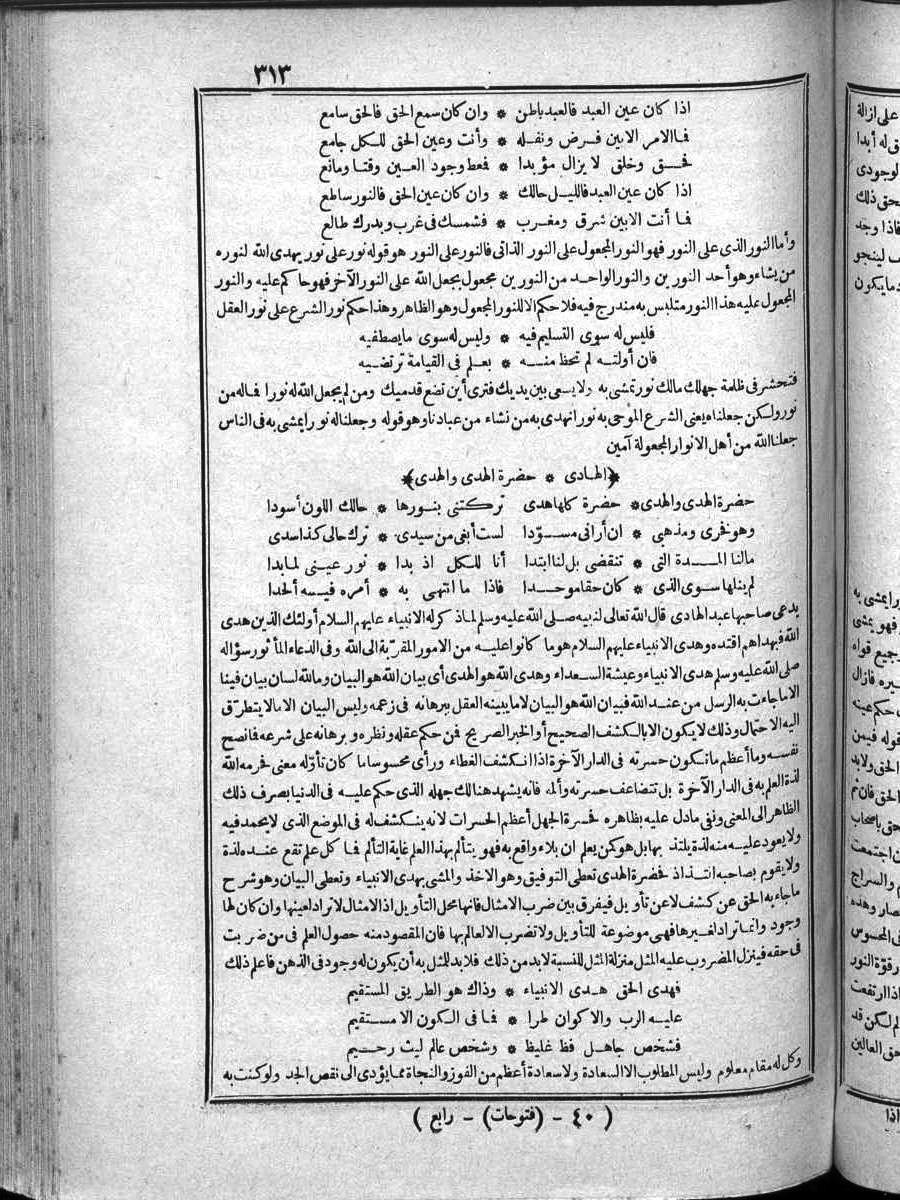 ٣١٣
اذا كان عين العبد فالعبد باطن * وان كان سمع الحق فالحق سامع
فما الامر الابين فرض ونفله * وأنت وعين الحق للكل جامع
فحق وخلق لا يزال مؤبدا * فمعط وجود العين وقتا ومانع
اذا كان عين العبد فالليل حالك * وان كان عين الحق فالنور ساطع
فما أنت الابين شرق ومغرب * فشمسك فى غرب وبدرك طالع
وأما النور الذى على النور فهو النور المجعول على النور الذاتى فالنور على النور هو قوله نور على نور يهدى الله لنوره
من يشاء وهو أحد النورين والنور الواحد من النورين مجعول بجعل الله على النور الآخر فهو حاكم عليه والنور
المجعول عليه هذا النور متلبس به مندرج فيه فلا حكم الا للنور المجعول وهو الظاهر وهذا حكم نور الشرع على نور العقل
فليس له سوى التسليم فيه * وليس له سوى ما يصطفيه
فان أولته لم تحظ منه * بعلم فى القيامة ترتضيه
فتحشر فى ظلمة جهلك مالك نور تمشى به ولا يسعى بين يديك فترى أين تضع قدميك ومن لم يجعل الله له نورا فماله من
نور ولكن جعلناه يعنى الشرع الموحى به نورا نهدى به من نشاء من عبادنا وهو قوله وجعلنا له نورا يمشى به فى الناس
جعلنا الله من أهل الانوار المجعولة آمين
﴿الهادى * حضرة الهدى والهدى﴾
حضرة الهدى والهدى * حضرة كلها هدى تركتنى بنورها * حالك اللون أسودا
وهو فخرى ومذهبى * ان أرانى مسوّدا لست أبغى من سيدى * ترك حالى كذا سدى
مالنا المدة التى * تنقضى بل لنا ابتدا أنا للكل اذ بدا * نور عينى لما بدا
لم ينلها سوى الذى * كان حقا موحدا فاذا ما انتهى به * أمره فيه ألحدا
يدعى صاحبها عبد الهادى قال الله تعالى لنبيه صلى الله عليه وسلم لما ذكر له الانبياء عليهم السلام أولئك الذين هدى
الله فبهداهم اقتده وهدى الانبياء عليهم السلام هو ما كانوا عليه من الامور المقرّبة الى الله وفى الدعاء المأثور سؤاله
صلى الله عليه وسلم هدى الانبياء وعيشة السعداء وهدى الله هو الهدى أى بيان الله هو البيان وما لله لسان بيان فينا
الا ما جاءت به الرسل من عند الله فبيان الله هو البيان لا ما يبينه العقل ببرهانه فى زعمه وليس البيان الا ما لا يتطرّق
اليه الاحتمال وذلك لا يكون الا بالكشف الصحيح أو الخبر الصريح فمن حكم عقله ونظره وبرهانه على شرعه فما نصح
نفسه وما أعظم ما تكون حسرته فى الدار الآخرة اذا انكشف الغطاء ورأى محسوسا ما كان تأوّله معنى فحرمه الله
لذة العلم به فى الدار الآخرة بل تتضاعف حسرته وألمه فانه يشهد هنالك جهله الذى حكم عليه فى الدنيا بصرف ذلك
الظاهر الى المعنى ونفى ما دل عليه بظاهره فحسرة الجهل أعظم الحسرات لانه ينكشف له فى الموضع الذى لا يحمد فيه
ولا يعود عليه منه لذة يلتذ بها بل هو كمن يعلم ان بلاء واقع به فهو يتألم بهذا العلم غاية التألم فما كل علم تقع عنده لذة
ولا يقوم بصاحبه التذاذ فحضرة الهدى تعطى التوفيق وهو الاخذ والمشى بهدى الانبياء وتعطى البيان وهو شرح
ما جاء به الحق عن كشف لا عن تأويل فيفرق بين ضرب الامثال فانها محل التأويل اذ الامثال لا تراد لعينها وان كان لها
وجود وانما تراد لغيرها فهى موضوعة للتأويل ولا تضرب الا لعالم بها فان المقصود منه حصول العلم فى من ضربت
فى حقه فينزل المضروب عليه المثل منزلة المثل للنسبة لا بد من ذلك فلا بد للمثل به أن يكون له وجود فى الذهن فاعلم ذلك
فهدى الحق هدى الانبياء * وذاك هو الطريق المستقيم
عليه الرب والاكوان طرا * فما فى الكون الا مستقيم
فشخص جاهل فظ غليظ * وشخص عالم ليث رحيم
وكل له مقام معلوم وليس المطلوب الا السعادة ولا سعادة أعظم من الفوز والنجاة مما يؤدى الى نقص الجد ولو كنت به
( ٤٠ - (فتوحات) - رابع )